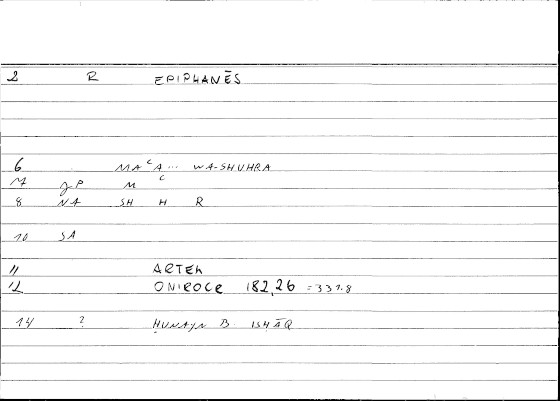 2 R EPIPHANĒS
6 MAᶜA... WA-SHUHRA
7 JP M ᶜ
8 NA SH H R
10 SA
11 ARTEM
12 ONIROCR 182,26 = 331.8
14 ? ḤUNAYN B. ISḤĀQ